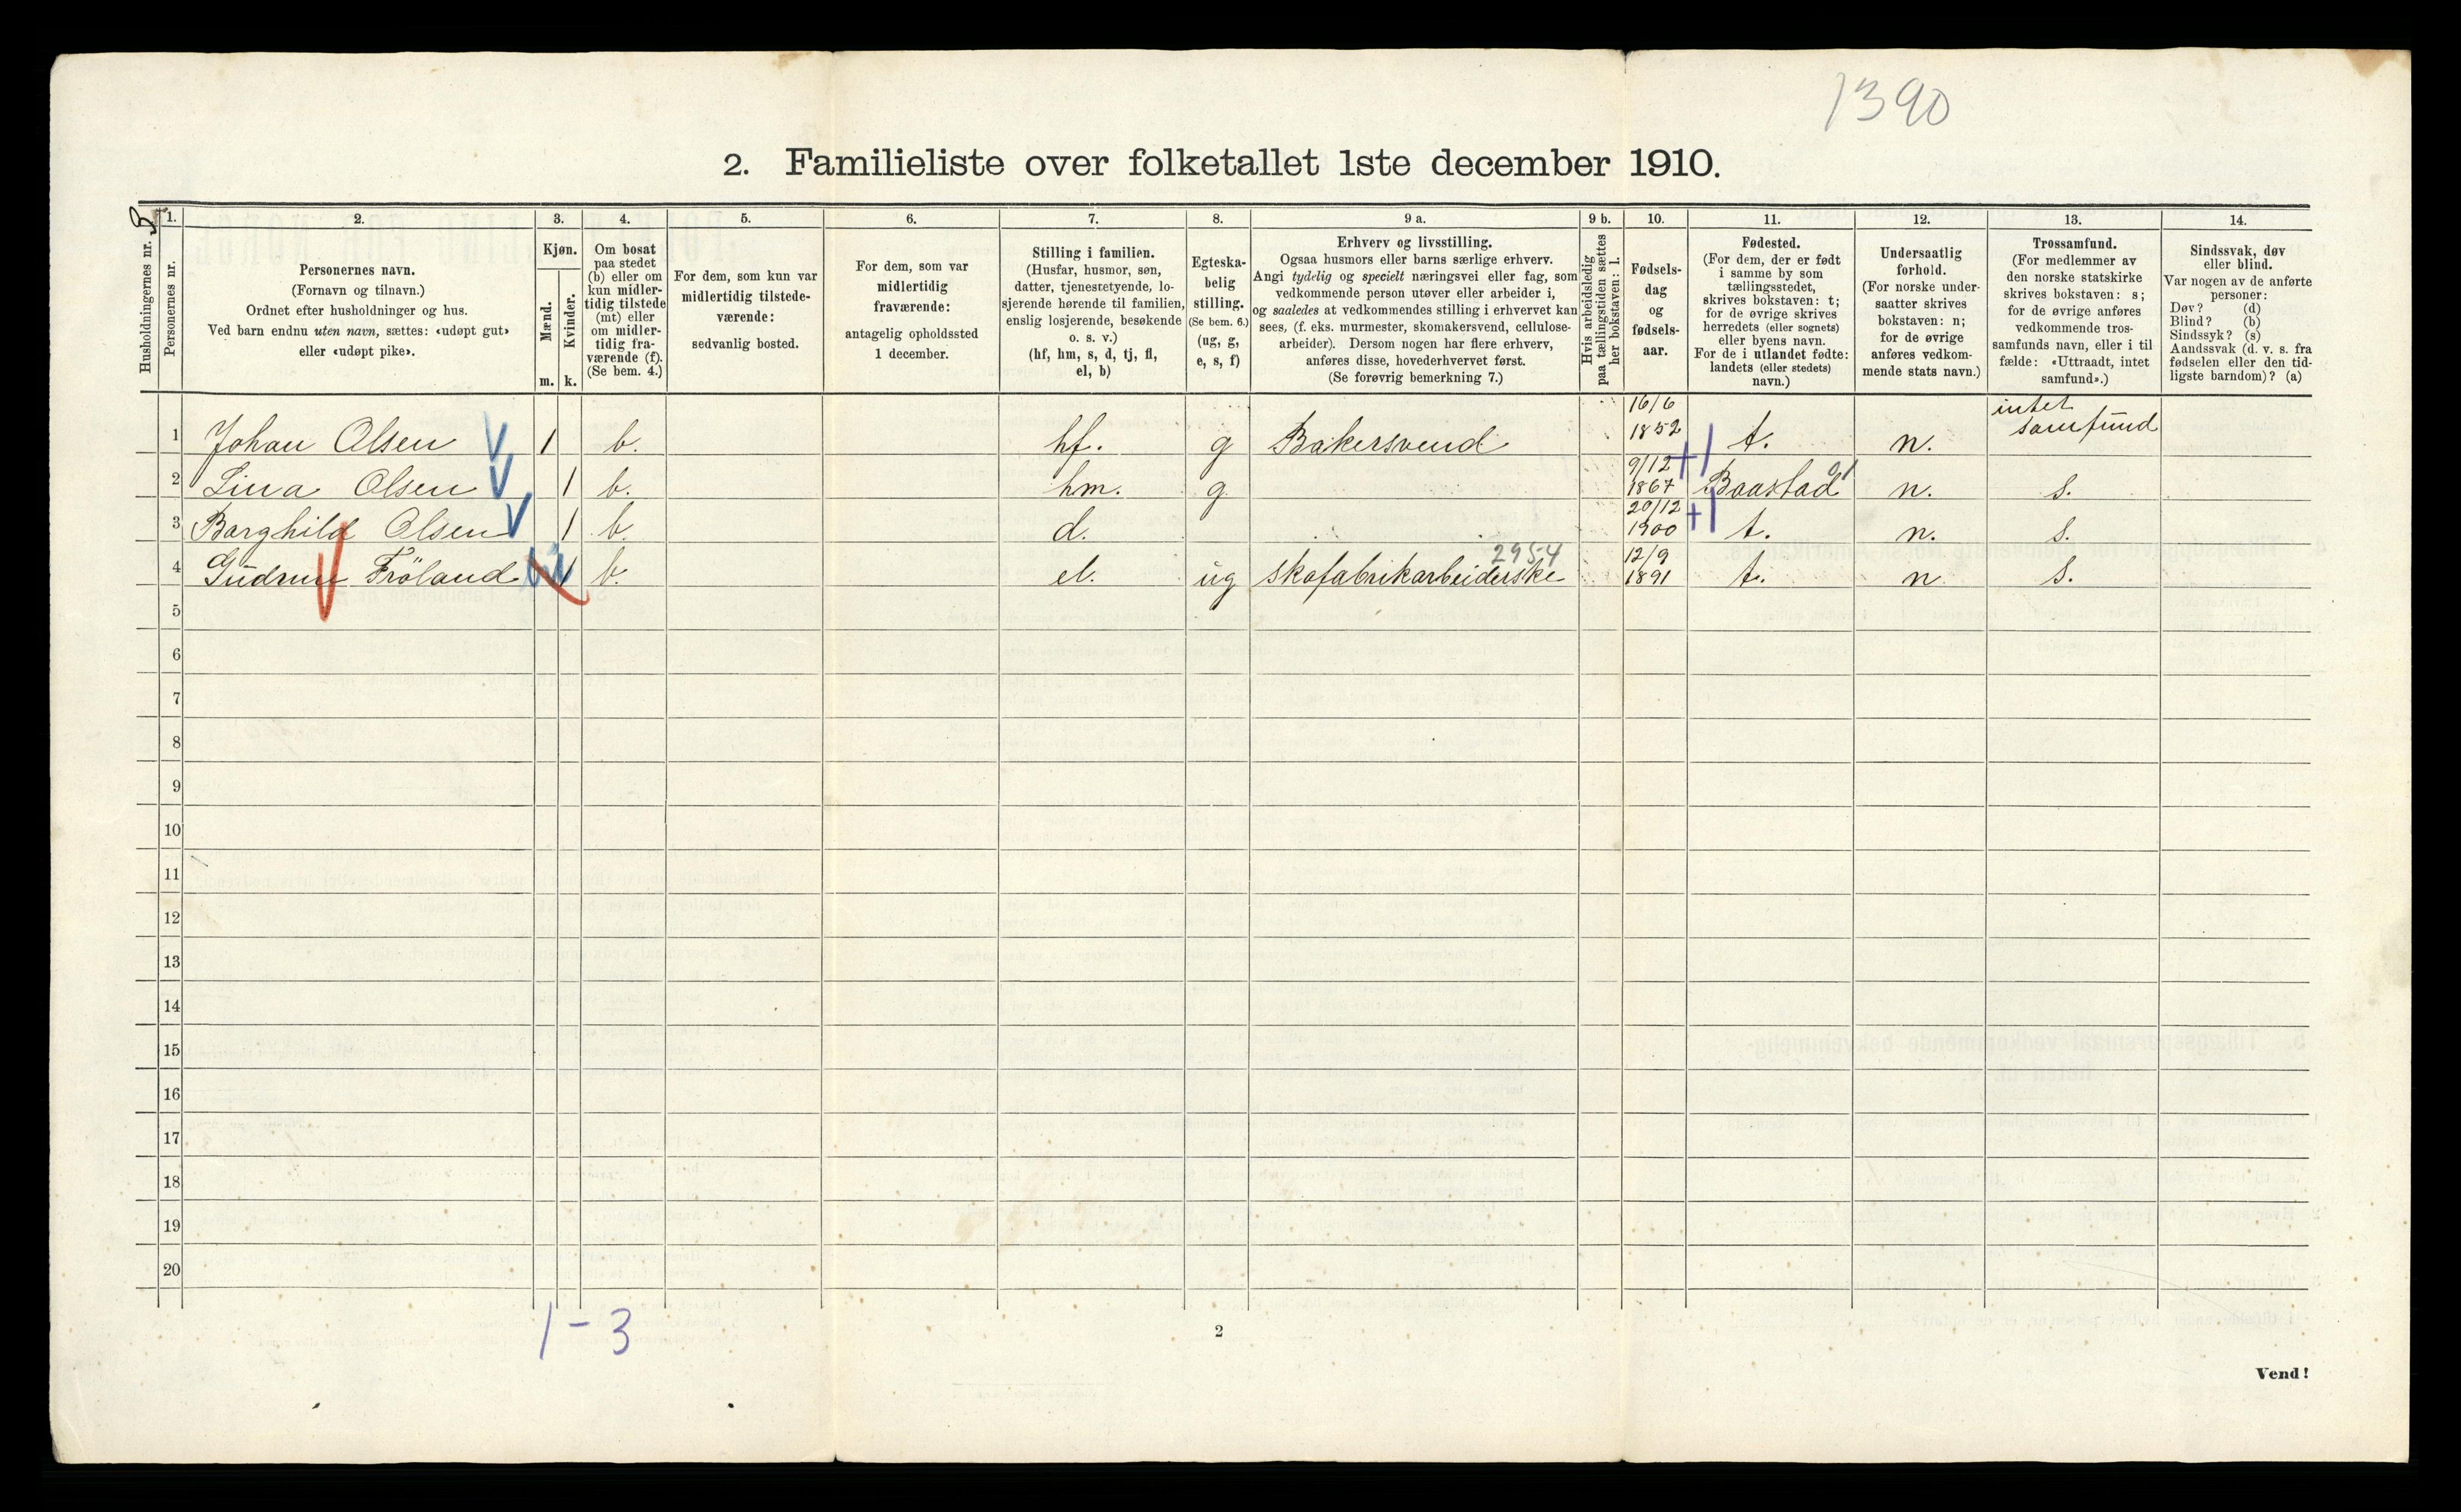 1390
2. Familieliste over folketallet 1ste december 1910.
Husholdningernes nr. 3
1.
Personernes nr.
2.
Personernes navn.
(Fornavn og tilnavn.)
Ordnet efter husholdninger og hus.
Ved barn endnu uten navn, sættes: «udøpt gut»
eller «udøpt pike».
3.
Kjøn.
Mænd.
Kvinder.
m. k.
4.
Om bosat
paa stedet
(b) eller om
kun midler-
tidig tilstede
(mt) eller
om midler-
tidig fra-
værende (f).
(Se bem. 4.)
5.
For dem, som kun var
midlertidig tilstede-
værende:
sedvanlig bosted.
6.
For dem, som var
midlertidig
fraværende:
antagelig opholdssted
1 december.
7.
Stilling i familien.
(Husfar, husmor, søn,
datter, tjenestetyende, lo-
sjerende hørende til familien,
enslig losjerende, besøkende
o. s. v.)
(hf, hm, s, d, tj, fl,
el, b)
8.
Egteska-
belig
stilling.
(Se bem. 6.)
(ug, g,
e, s, f)
9 a.
Erhverv og livsstilling.
Ogsaa husmors eller barns særlige erhverv.
Angi tydelig og specielt næringsvei eller fag, som
vedkommende person utøver eller arbeider i,
og saaledes at vedkommendes stilling i erhvervet kan
sees, (f. eks. murmester, skomakersvend, cellulose-
arbeider). Dersom nogen har flere erhverv,
anføres disse, hovederhvervet først.
(Se forøvrig bemerkning 7.)
9 b.
Hvis arbeidsledig
paa tællingstiden sættes
her bokstaven: l.
10.
Fødsels-
dag
og
fødsels-
aar.
11.
Fødested.
(For dem, der er født
i samme by som
tællingsstedet,
skrives bokstaven: t;
for de øvrige skrives
herredets (eller sognets)
eller byens navn.
For de i utlandet fødte:
landets (eller stedets)
navn.)
12.
Undersaatlig
forhold.
(For norske under-
saatter skrives
bokstaven: n;
for de øvrige
anføres vedkom-
mende stats navn.)
13.
Trossamfund.
(For medlemmer av
den norske statskirke
skrives bokstaven: s;
for de øvrige anføres
vedkommende tros-
samfunds navn, eller i til
fælde: «Uttraadt, intet
samfund».)
14.
Sindssvak, døv
eller blind.
Var nogen av de anførte
personer:
Døv? (d)
Blind? (b)
Sindssyk? (s)
Aandssvak (d. v. s. fra
fødselen eller den tid-
ligste barndom)? (a)
1 Johan Olsen 1 b. hf. g Bakersvend 16/6 1852 t. n. intet samfund
2 Lina Olsen 1 b. hm. g 9/12 1867 Baastad 01 n. s.
3 Borghild Olsen 1 b. d. 20/12 1900 t. n. s.
4 Gudrun Fröland 1 b. el. ug skofabrikarbeiderske 2954 12/9 1891 t. n s.
5
6
7
8
9
10
11
12
13
14
15
16
17
18
19
20
1 - 3
2
Vend!